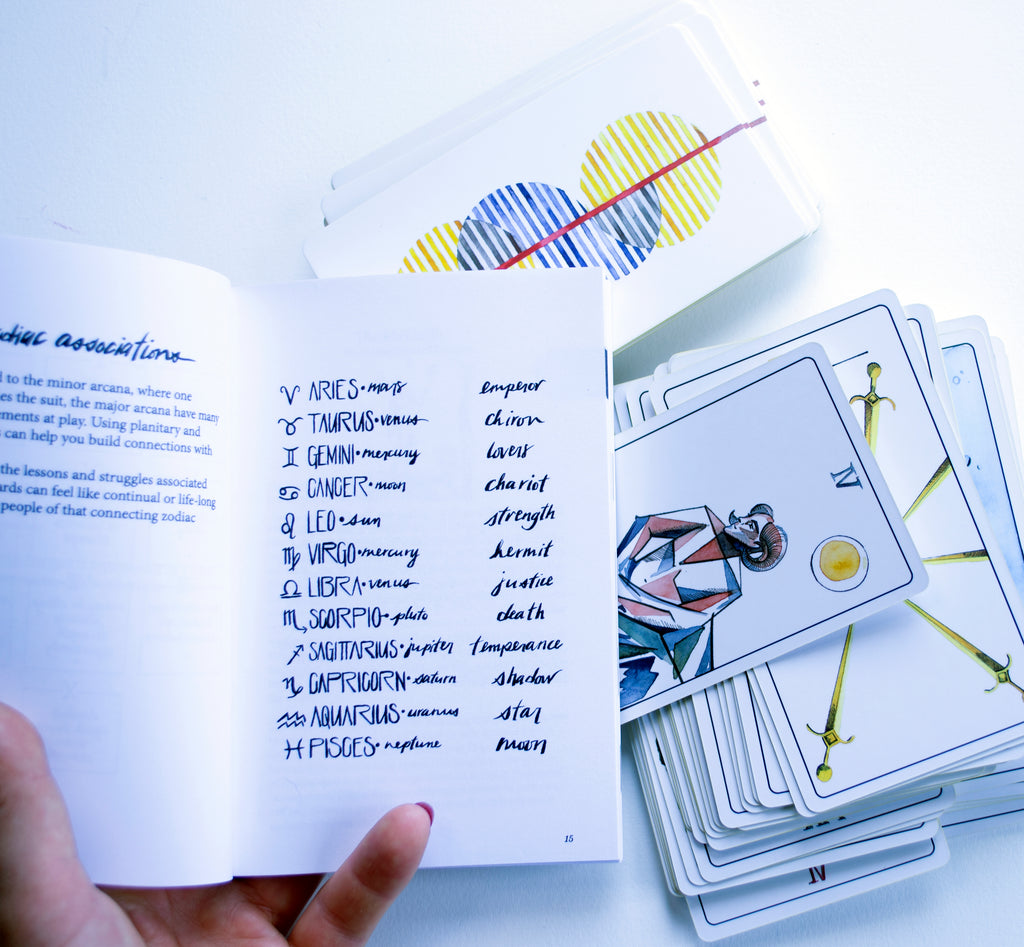 adiac associations
d to the minor arcana, where one
es the suit, the major arcana have many
ements at play. Using planitary and
s can help you build connections with
the lessons and struggles associated
ards can feel like continual or life-long
people of that connecting zodiac
♈ ARIES • mars emperor
♉ TAURUS • venus chiron
♊ GEMINI • mercury lovers
♋ CANCER • moon chariot
♌ LEO • sun strength
♍ VIRGO • mercury hermit
♎ LIBRA • venus justice
♏ SCORPIO • pluto death
♐ SAGITTARIUS • jupiter temperance
♑ CAPRICORN • saturn shadow
♒ AQUARIUS • uranus star
♓ PISCES • neptune moon
15
IV
IV